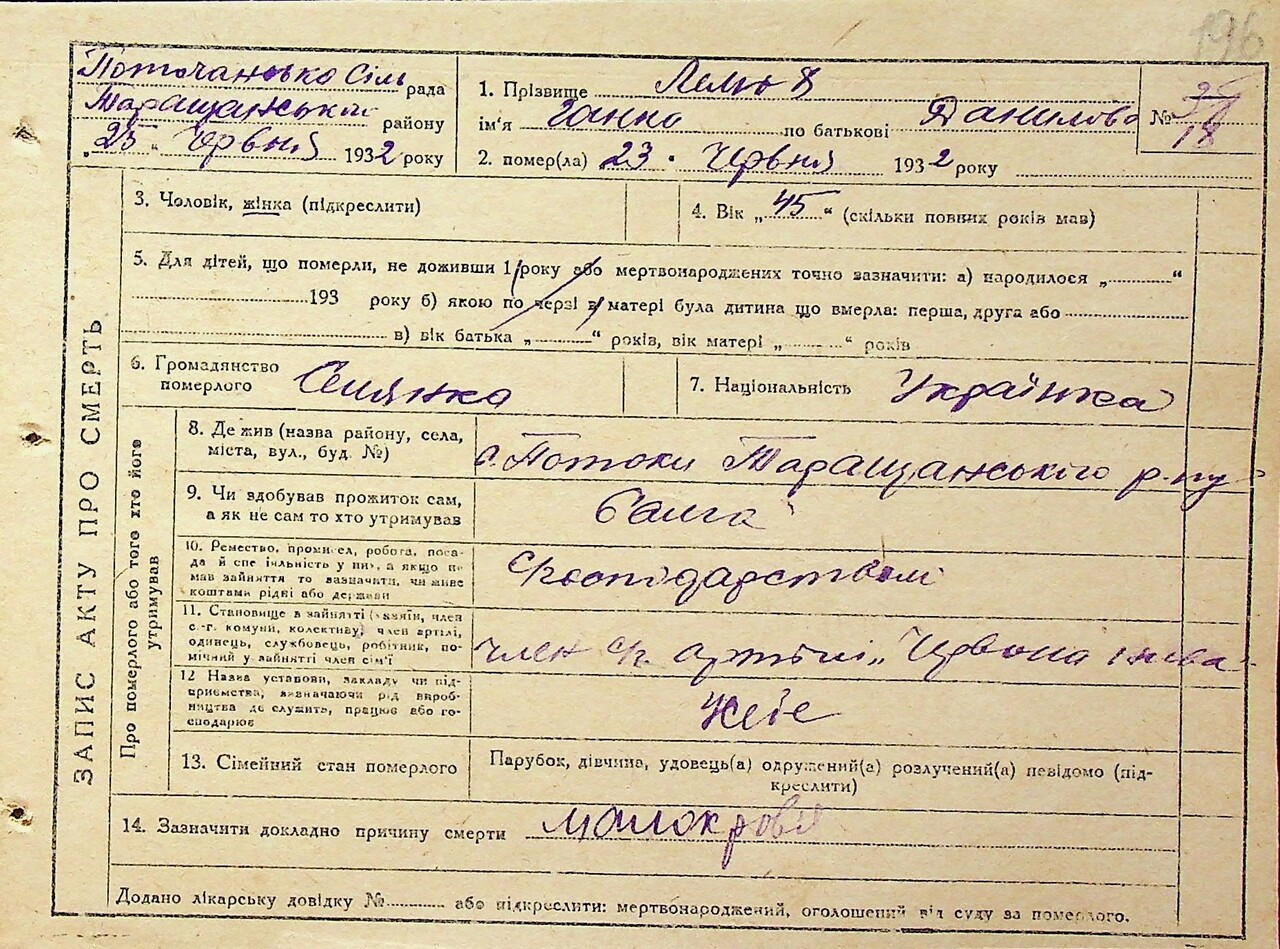 196
Поточансько Сіль рада
Таращанський району
„25“ Червня 1932 року
1. Прізвище
ім'я Ганна по батькові Данилова
2. помер(ла) 23. Червня 1932 року
№
ЗАПИС АКТУ ПРО СМЕРТЬ
3. Чоловік, жінка (підкреслити)
4. Вік „45“ (скільки повних років мав)
5. Для дітей, що померли, не доживши 1 року або мертвонароджених точно зазначити: а) народилося „ “
193 року б) якою по черзі в матері була дитина що вмерла: перша, друга або
в) вік батька „ “ років, вік матері „ “ років
6. Громадянство померлого Селянка
7. Національність Українка
Про померлого або того хто його утримував
8. Де жив (назва району, села,
міста, вул., буд. №)
с. Потоки Таращанського р-ну
9. Чи здобував прожиток сам,
а як не сам то хто утримував
Сама
10. Ремество, промисел, робота, поса-
да й спеціальність у них, а якщо не
мав зайняття то зазначити, чи живе
коштами рідні або держави
господарством
11. Становище в зайнятті (хазяїн, член
с.-г. комуни, колективу, член артілі,
одинець, службовець, робітник, по-
мічний у зайнятті член сім'ї
член артілі „Червона нива
12 Назва установи, закладу чи під-
приємства, визначаючи рід вироб-
ництва де служить, працює або го-
сподарює
13. Сімейний стан померлого
Парубок, дівчина, удовець(а) одружений(а) розлучений(а) невідомо (під-
креслити)
14. Зазначити докладно причину смерти малокровя
Додано лікарську довідку № або підкреслити: мертвонароджений, оголошений від суду за померлого.